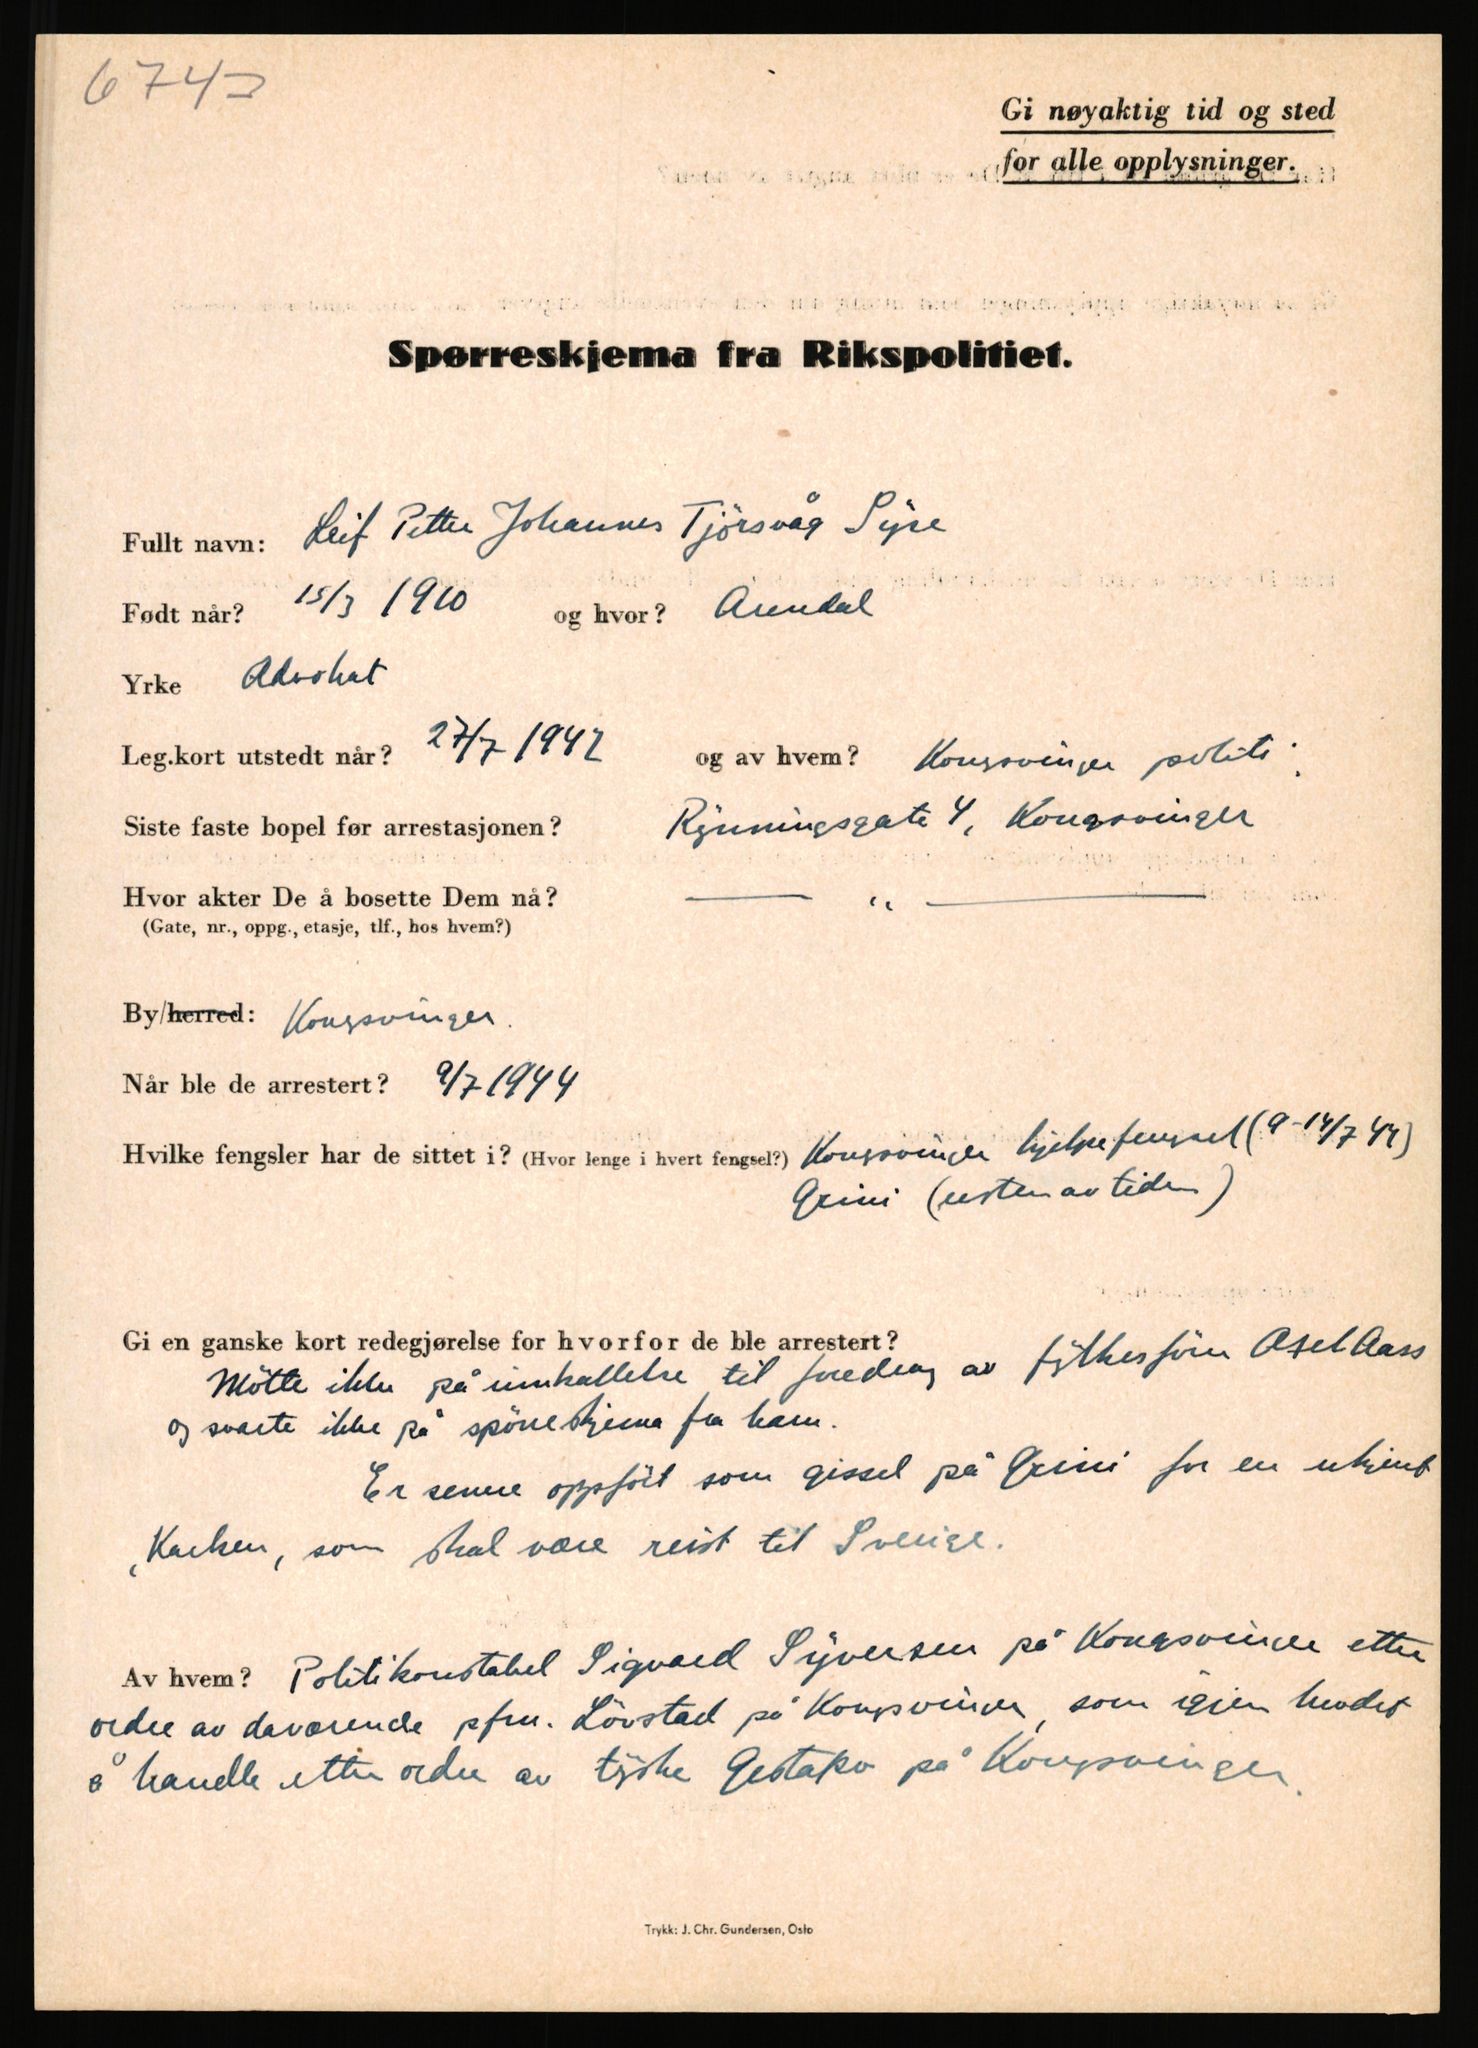 6743
Gi nøyaktig tid og sted
for alle opplysninger.
Spørreskjema fra Rikspolitiet.
Fullt navn: Leif Petter Johannes Tjörsvåg Syse
Født når? 15/3 1910 og hvor? Arendal
Yrke Advokat
Leg.kort utstedt når? 27/7 1942 og av hvem? Kongsvinger politi.
Siste faste bopel før arrestasjonen? Rynningsgate 4, Kongsvinger
Hvor akter De å bosette Dem nå? — „ —
(Gate, nr., oppg., etasje, tlf., hos hvem?)
By/herred: Kongsvinger.
Når ble de arrestert? 9/7 1944
Hvilke fengsler har de sittet i? (Hvor lenge i hvert fengsel?) Kongsvinger hjelpefengsel (9-14/7 44)
Grini (resten av tiden)
Gi en ganske kort redegjørelse for hvorfor de ble arrestert?
Mötte ikke på innkallelse til foredrag av fylkesförer Axel Aass
og svarte ikke på spörreskjema fra ham.
Er senere oppfört som gissel på Grini for en ukjent
Karlsen, som skal være reist til Sverige.
Av hvem? Politikonstabel Sigvard Syversen på Kongsvinger etter
ordre av daværende pfm. Lövstad på Kongsvinger, som igjen hevdet
å handle etter ordre av tyske Gestapo på Kongsvinger.
Trykk: J. Chr. Gundersen, Oslo